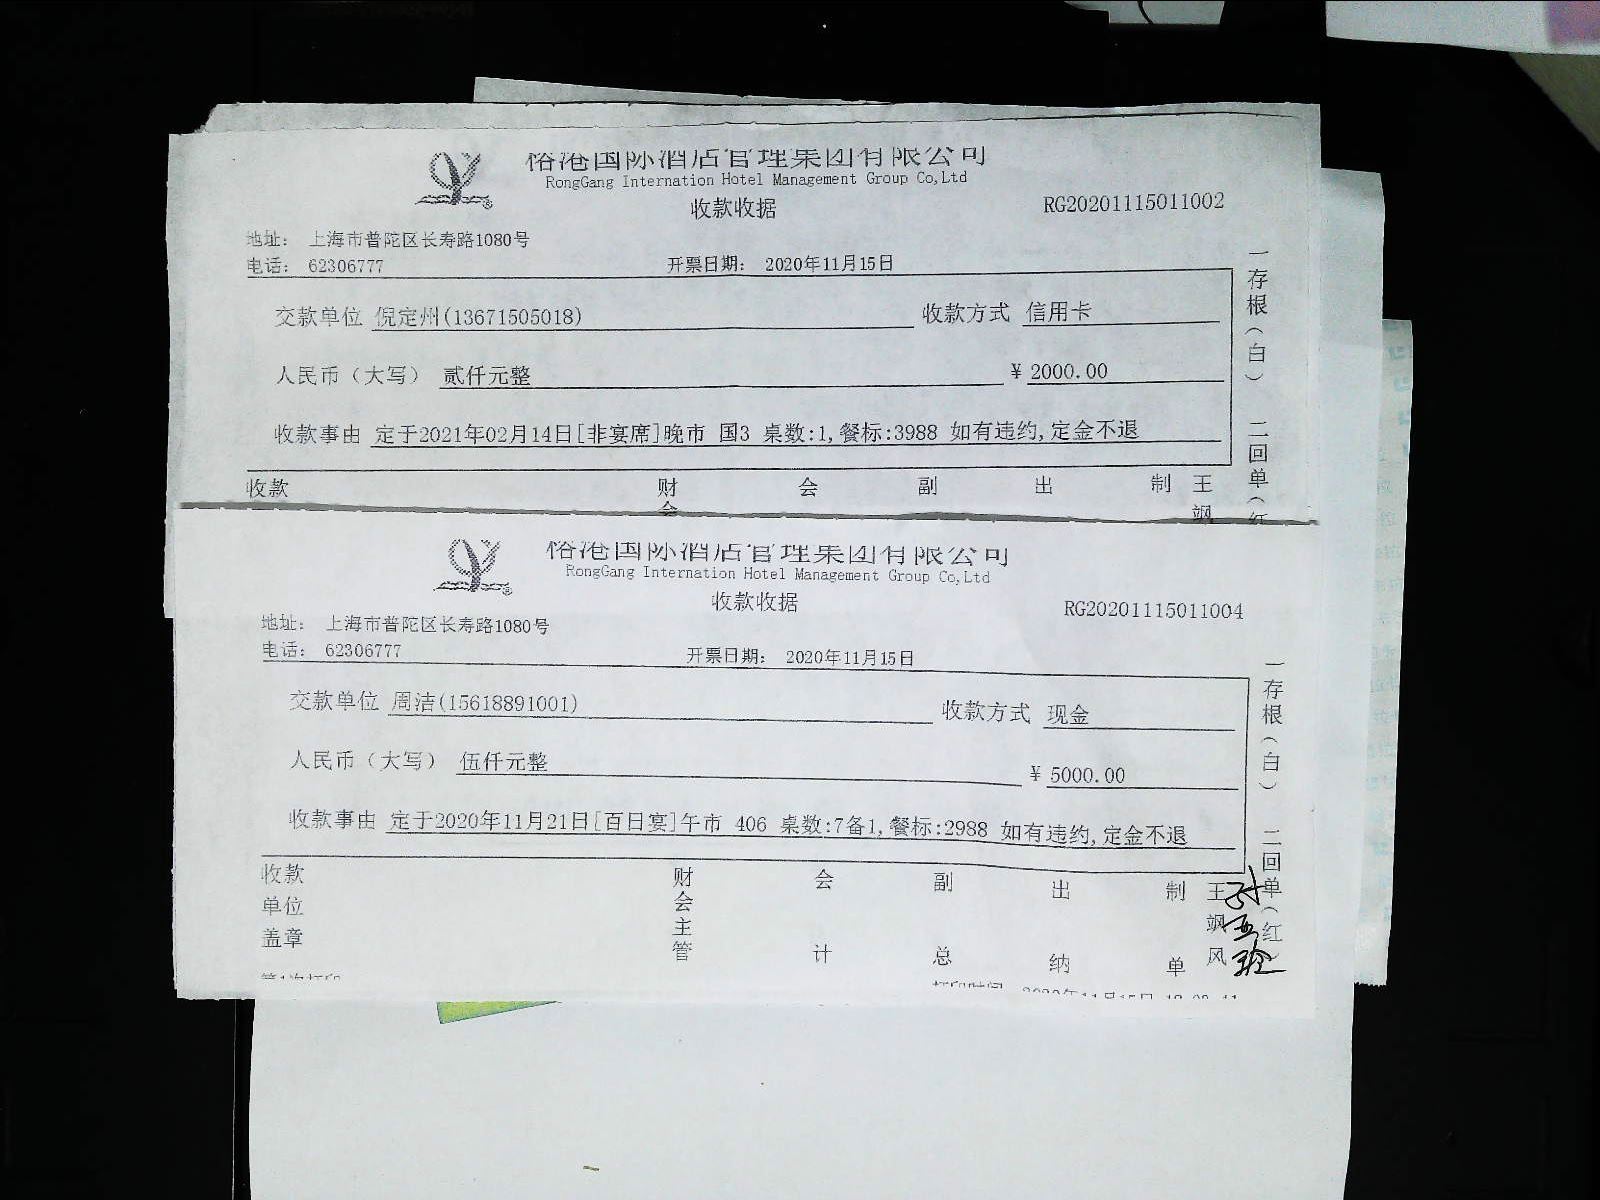 榕港国际酒店管理集团有限公司
RongGang Internation Hotel Management Group Co,Ltd
收款收据
RG20201115011002
地址： 上海市普陀区长寿路1080号
电话： 62306777 开票日期： 2020年11月15日
交款单位 倪定州(13671505018) 收款方式 信用卡
人民币（大写） 贰仟元整 ¥ 2000.00
收款事由 定于2021年02月14日[非宴席]晚市 国3 桌数:1,餐标:3988 如有违约,定金不退
收款 财会 会 副 出 制 王飒
一存根（白） 二回单（红
榕港国际酒店管理集团有限公司
RongGang Internation Hotel Management Group Co,Ltd
收款收据
RG20201115011004
地址： 上海市普陀区长寿路1080号
电话： 62306777 开票日期： 2020年11月15日
交款单位 周洁(15618891001) 收款方式 现金
人民币（大写） 伍仟元整 ¥ 5000.00
收款事由 定于2020年11月21日[百日宴]午市 406 桌数:7备1,餐标:2988 如有违约,定金不退
收款单位盖章 财会主管 会计 副总 出纳 制单 王飒风
一存根（白） 二回单（红）
第1次打印
打印时间 2020年11月15日